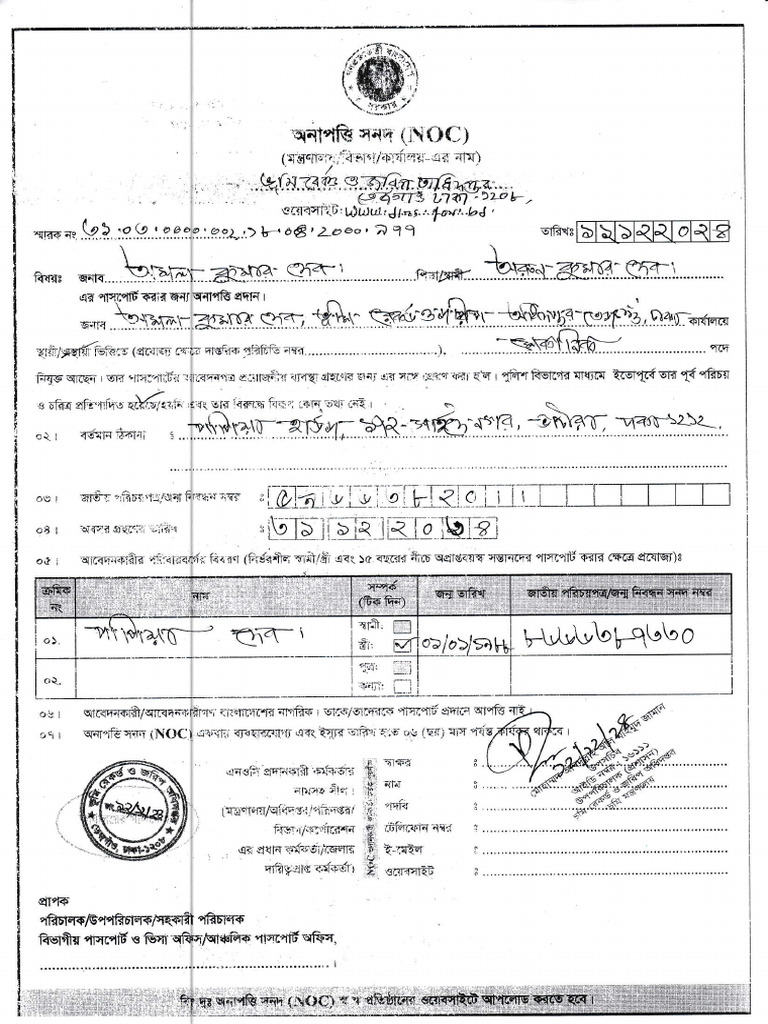 গণপ্রজাতন্ত্রী বাংলাদেশ সরকার
অনাপত্তি সনদ (NOC)
(মন্ত্রণালয়/বিভাগ/কার্যালয়-এর নাম)
ভূমি রেকর্ড ও জরিপ অধিদপ্তর
তেজগাঁও ঢাকা-১২০৮,
ওয়েবসাইট: www.dlrs.gov.bd.
স্মারক নং ৩১.০৩.০০০০.০০২.১৮.০৪.২০০০.৯৭৭ তারিখঃ ১১১২২০২৪
বিষয়ঃ জনাব অমল কুমার দেব। পিতা/স্বামী অরুন কুমার দেব।
এর পাসপোর্ট করার জন্য অনাপত্তি প্রদান।
জনাব অমল কুমার দেব, ভূমি রেকর্ড ও জরিপ অধিদপ্তর তেজগাঁও, ঢাকা কার্যালয়ে
স্থায়ী/অস্থায়ী ভিত্তিতে (প্রযোজ্য ক্ষেত্রে দাপ্তরিক পরিচিতি নম্বর ), পদে
নিযুক্ত আছেন। তার পাসপোর্টের আবেদনপত্র প্রয়োজনীয় ব্যবস্থা গ্রহণের জন্য এর সঙ্গে প্রেরণ করা হ'ল। পুলিশ বিভাগের মাধ্যমে ইতোপূর্বে তার পূর্ব পরিচয়
ও চরিত্র প্রতিপাদিত হয়েছে/হয়নি এবং তার বিরুদ্ধে বিরূপ কোন তথ্য নেই।
০২। বর্তমান ঠিকানা: নগর, ঢাকা ১২১২.
০৩। জাতীয় পরিচয়পত্র/জন্ম নিবন্ধন নম্বর : ৫৯৬৬৩৮২০১১
০৪। অবসর গ্রহণের তারিখ : ৩১১২২০৩৪
০৫। আবেদনকারীর পরিবারবর্গের বিবরণ (নির্ভরশীল স্বামী/স্ত্রী এবং ১৫ বছরের নীচে অপ্রাপ্তবয়স্ক সন্তানদের পাসপোর্ট করার ক্ষেত্রে প্রযোজ্য)ঃ
ক্রমিক নং নাম সম্পর্ক (টিক দিন) জন্ম তারিখ জাতীয় পরিচয়পত্র/জন্ম নিবন্ধন সনদ নম্বর
০১. পাপিয়া দেব। স্বামী: স্ত্রী: ✓ ০১/০১/১৯৮৮
০২. পুত্র: কন্যা:
০৬। আবেদনকারী/আবেদনকারীগণ বাংলাদেশের নাগরিক। তাকে/তাদেরকে পাসপোর্ট প্রদানে আপত্তি নাই।
০৭। অনাপত্তি সনদ (NOC) একবার ব্যবহারযোগ্য এবং ইস্যুর তারিখ হতে ০৬ (ছয়) মাস পর্যন্ত কার্যকর থাকবে।
১১/১২/২৪
এনওসি প্রদানকারী কর্মকর্তার
নামসহ সীল।
(মন্ত্রণালয়/অধিদপ্তর/পরিদপ্তর/
বিভাগ/কর্পোরেশন
এর প্রধান কর্মকর্তা/জেলার
দায়িত্বপ্রাপ্ত কর্মকর্তা)
স্বাক্ষর :
নাম :
পদবি :
টেলিফোন নম্বর :
ই-মেইল :
ওয়েবসাইট :
উপসচিব
আইডি নম্বর- ১৬১১১
উপপরিচালক (প্রশাসন)
ভূমি রেকর্ড ও জরিপ অধিদপ্তর
ভূমি মন্ত্রণালয়
ভূমি রেকর্ড ও জরিপ অধিদপ্তর
তেজগাঁও, ঢাকা-১২০৮
প্রাপক
পরিচালক/উপপরিচালক/সহকারী পরিচালক
বিভাগীয় পাসপোর্ট ও ভিসা অফিস/আঞ্চলিক পাসপোর্ট অফিস,
বিঃ দ্রঃ অনাপত্তি সনদ (NOC) স্ব স্ব প্রতিষ্ঠানের ওয়েবসাইটে আপলোড করতে হবে।